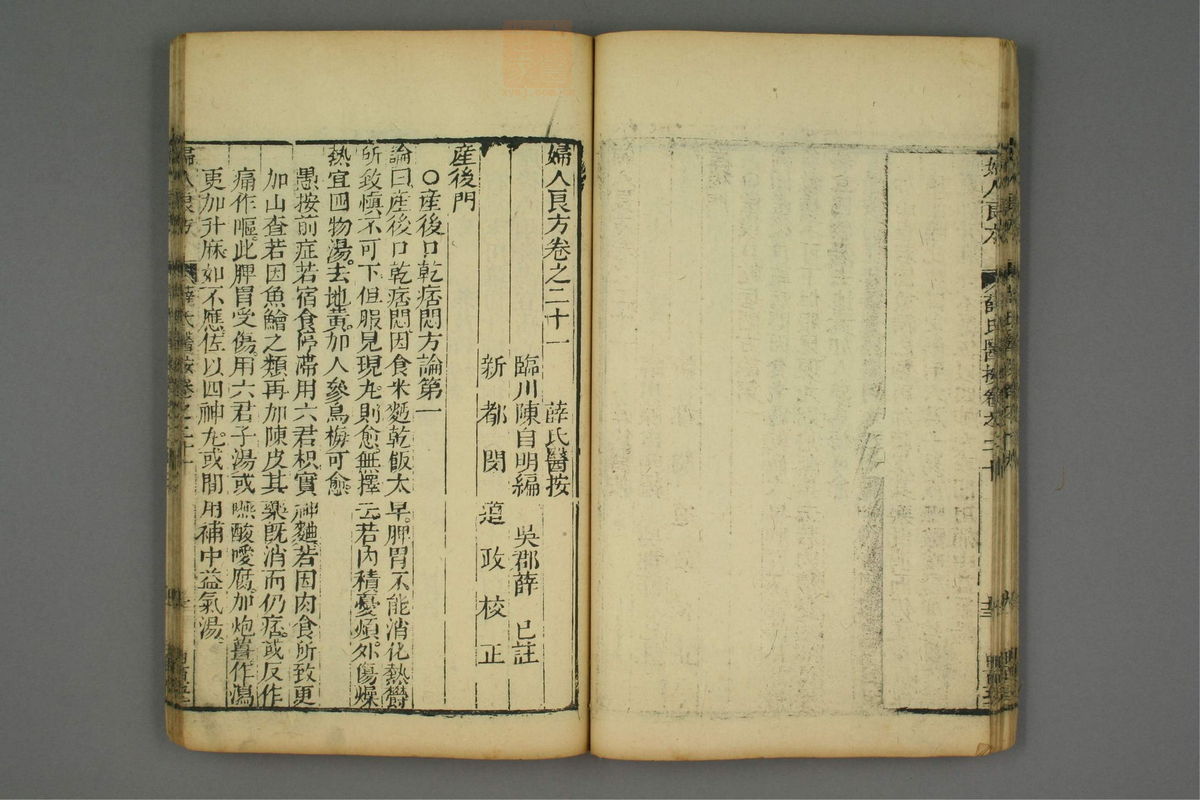 婦人良方卷之二十一 薛氏醫按
臨川陳自明編 吳郡薛 已註
新都閔 道政校正
産後門
○産後口乾痞悶方論第一
論曰産後口乾痞悶因食米麵乾飯太早。脾胃不能消化熱欝
所致慎不可下但服見現丸則愈無擇云若內積憂煩外傷燥
熱宜四物湯。去地黃。加人參烏梅可愈
愚按前症若宿食停滯用六君枳實神麯若因肉食所致更
加山查若因魚鱠之類再加陳皮其藥旣消而仍痞。或反作
痛作嘔。此脾胃受傷。用六君子湯或嚥酸噯腐。加炮薑作瀉
更加升麻。如不應。佐以四神丸。或間用補中益氣湯。
婦人良方
薛氏醫按卷之二十
婦人良方
薛氏醫按卷之二十一